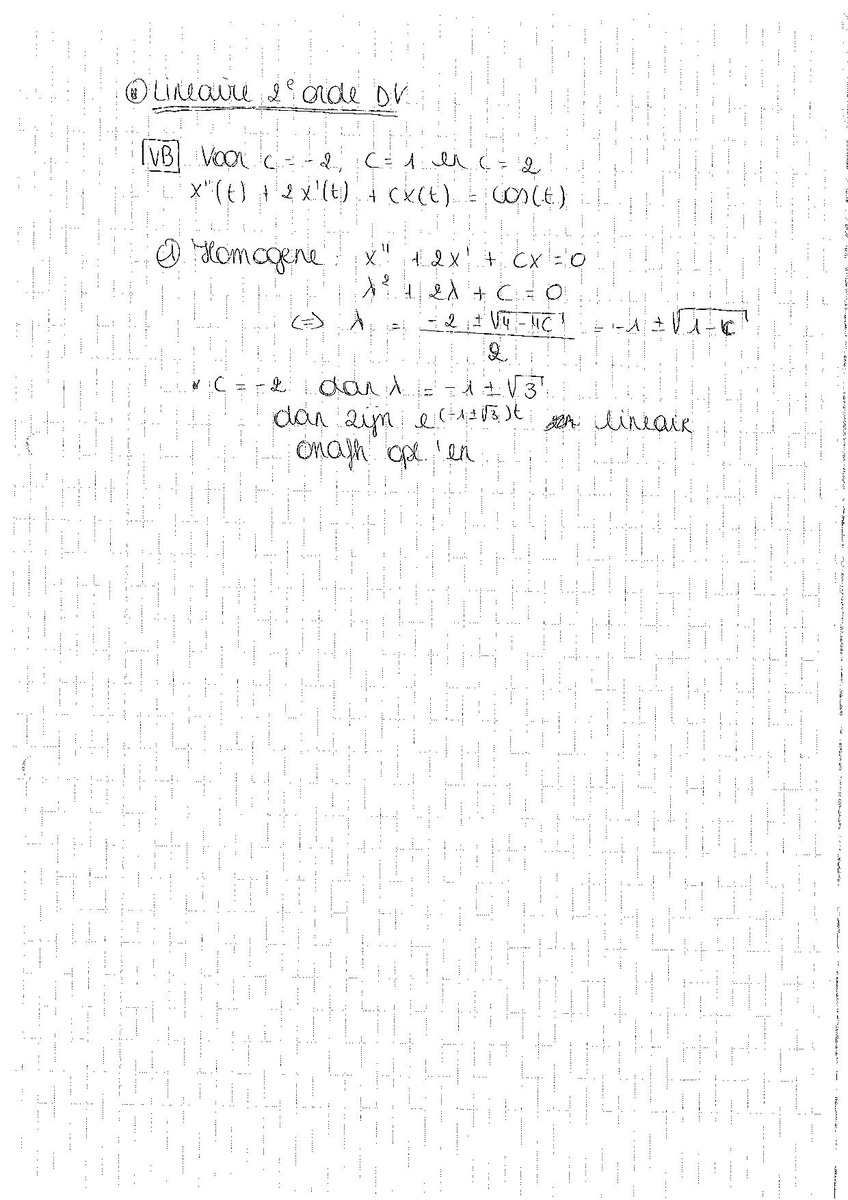 Lineaire 2e orde DV.
VB Voor c = -2, c = 1 en c = 2
x''(t) + 2x'(t) + cx(t) = cos(t)
① Homogene: x'' + 2x' + cx = 0
λ² + 2λ + c = 0
<=> λ = (-2 ± √(4-4c))/2 = -1 ± √(1-c)
* c = -2 dan λ = -1 ± √3
dan zijn e^((-1±√3)t) lineair
onafh opl'en